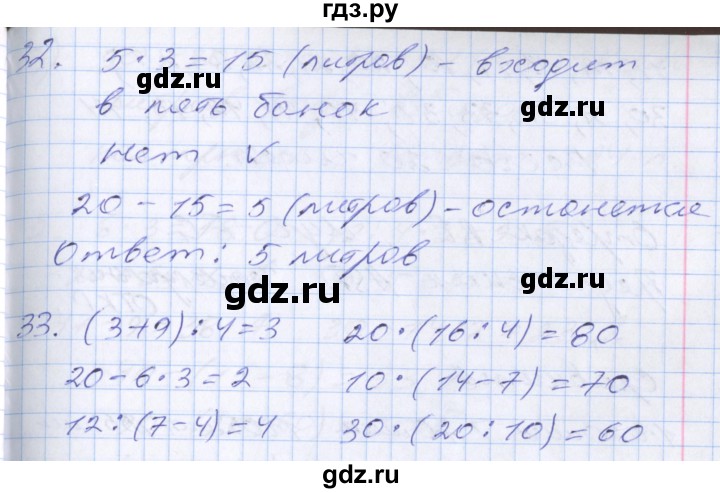 гдз.ру
32. 5 · 3 = 15 (литров) - входит
gdz.ru
в пять банок
gdz.ru
нет ✓
20 - 15 = 5 (литров) - останется
Ответ: 5 литров
gdz.ru
33. (3+9) : 4 = 3
20 · (16 : 4) = 80
20 - 6 · 3 = 2
10 · (14 - 7) = 70
12 : (7 - 4) = 4
30 · (20 : 10) = 60
gdz.ru
gdz.ru